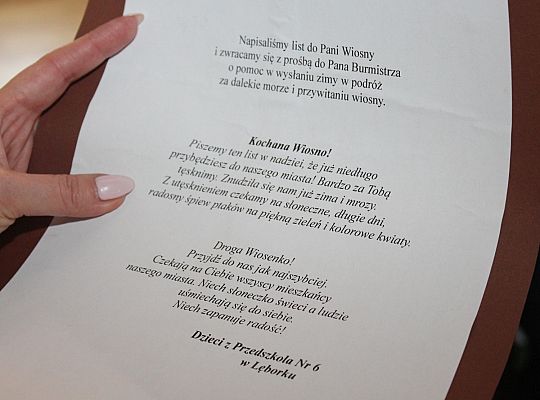 Napisaliśmy list do Pani Wiosny
i zwracamy się z prośbą do Pana Burmistrza
o pomoc w wysłaniu zimy w podróż
za dalekie morze i przywitaniu wiosny.
Kochana Wiosno!
Piszemy ten list w nadziei, że już niedługo
przybędziesz do naszego miasta! Bardzo za Tobą
tęsknimy. Znudziła się nam już zima i mrozy.
Z utęsknieniem czekamy na słoneczne, długie dni,
radosny śpiew ptaków na piękną zieleń i kolorowe kwiaty.
Droga Wiosenko!
Przyjdź do nas jak najszybciej.
Czekają na Ciebie wszyscy mieszkańcy
naszego miasta. Niech słoneczko świeci a ludzie
uśmiechają się do siebie.
Niech zapanuje radość!
Dzieci z Przedszkola Nr 6
w Lęborku